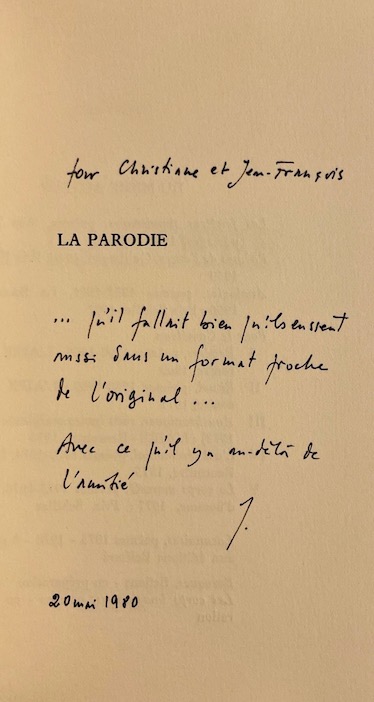 pour Christiane et Jean-François
LA PARODIE
... qu'il fallait bien qu'ils eussent
aussi dans un format proche
de l'original ...
Avec ce qu'il y a au-delà de
l'amitié
J.
20 mai 1980